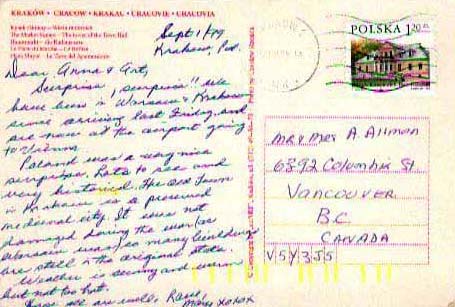 KRAKÓW • CRACOW • KRAKAU • CRACOVIE • CRACOVIA
Rynek Główny – Wieża ratuszowa
The Market Square – The tower of the Town Hall
Plaza Mayor – La Torre del Ayuntamiento
Sept 1/99
Krakow, Pol.
Dear Anna & Art,
Surprise, surprise!! We
have been in Warsaw & Krakow
since arriving last Friday, and
are now at the airport going
to Vienna.
Poland was a very nice
surprise, lots to see and
very historical. The old town
in Krakow is a preserved
medieval city. It was not
damaged during the war (as
Warsaw was) so many buildings
are still in the original state.
Weather is seeing and warm
but not too hot.
Hope all are well. Love,
Mary xoxox
POLSKA 1,20 ZŁ
Mr & Mrs A Allman
6392 Columbia St
VANCOUVER
B.C.
CANADA
V5Y3J5